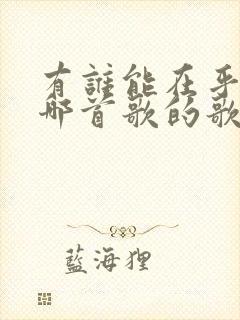 有誰能在乎
哪首歌的歌
藍海狸